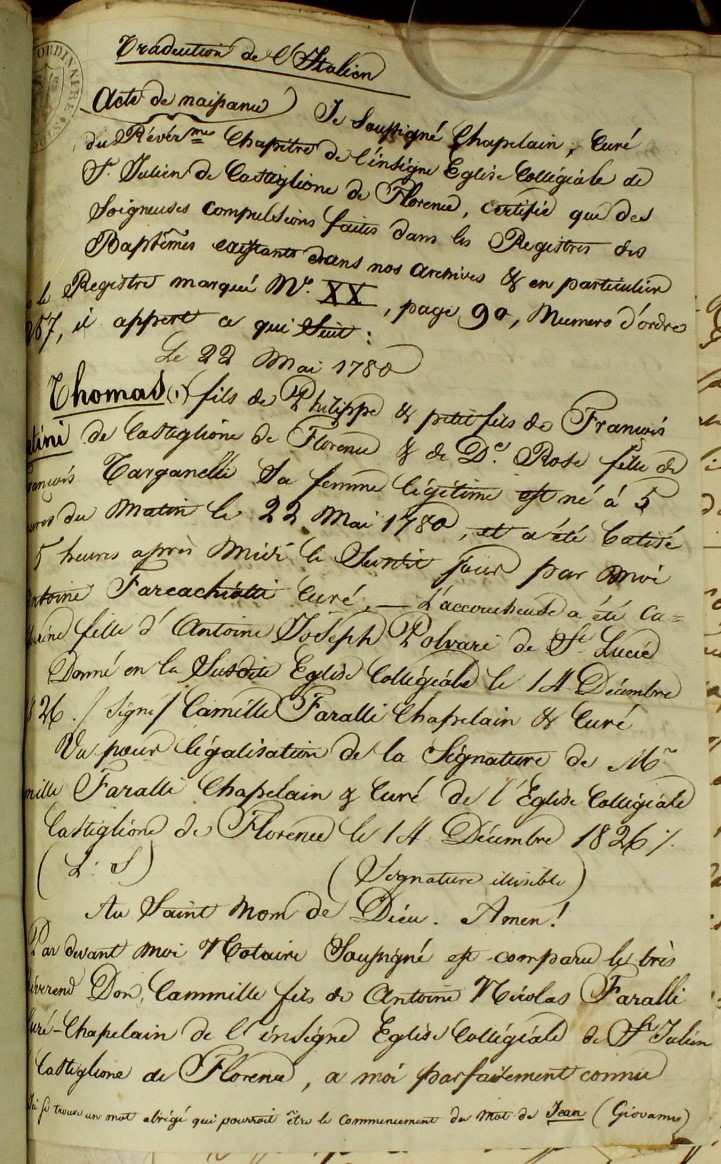 Traduction de l'Italien
Acte de naissance) Je Soussigné Chapelain, Curé
du Révér.me Chapitre de l'insigne Eglise Collégiale de
St. Julien de Castiglione de Florence, certifie que des
Soigneuses compulsions faites dans les Registres des
Baptêmes existants dans nos archives & en particulier
le Registre marqué No. XX, page 90, Numero d'ordre
267, il appert ce qui Suit:
Le 22 Mai 1780
Thomas (1) fils de Philippe & petit fils de François
de Castiglione de Florence & de De. Rose fille de
François Targanelli Sa femme légitime est né à 5
heures du Matin le 22 Mai 1780, et a été batisé
5 heures après Midi le Susdit jour par Moi
Antoine Curé. — L'accoucheuse a été Ca=
fille d'Antoine Joseph Polvari de Ste Lucie
Donné en la Susdite Eglise Collégiale le 14 Décembre
1826. / Signé / Camille Faralli Chapelain & Curé
Vu pour légalisation de la Signature de Mr
Camille Faralli Chapelain & Curé de l'Eglise Collégiale
Castiglione de Florence le 14 Décembre 1826 %
(L: S) (Signature illisible)
Au Saint Nom de Dieu. Amen!
Par devant Moi Notaire Soussigné est comparu le très
Révérend Don, Cammille fils de Antoine Nicolas Faralli
Curé-Chapelain de l'insigne Eglise Collégiale de St Julien
Castiglione de Florence, a moi parfaitement connu
se trouve un mot abrégé qui pourroit être le commencement du mot de Jean (Giovanni)